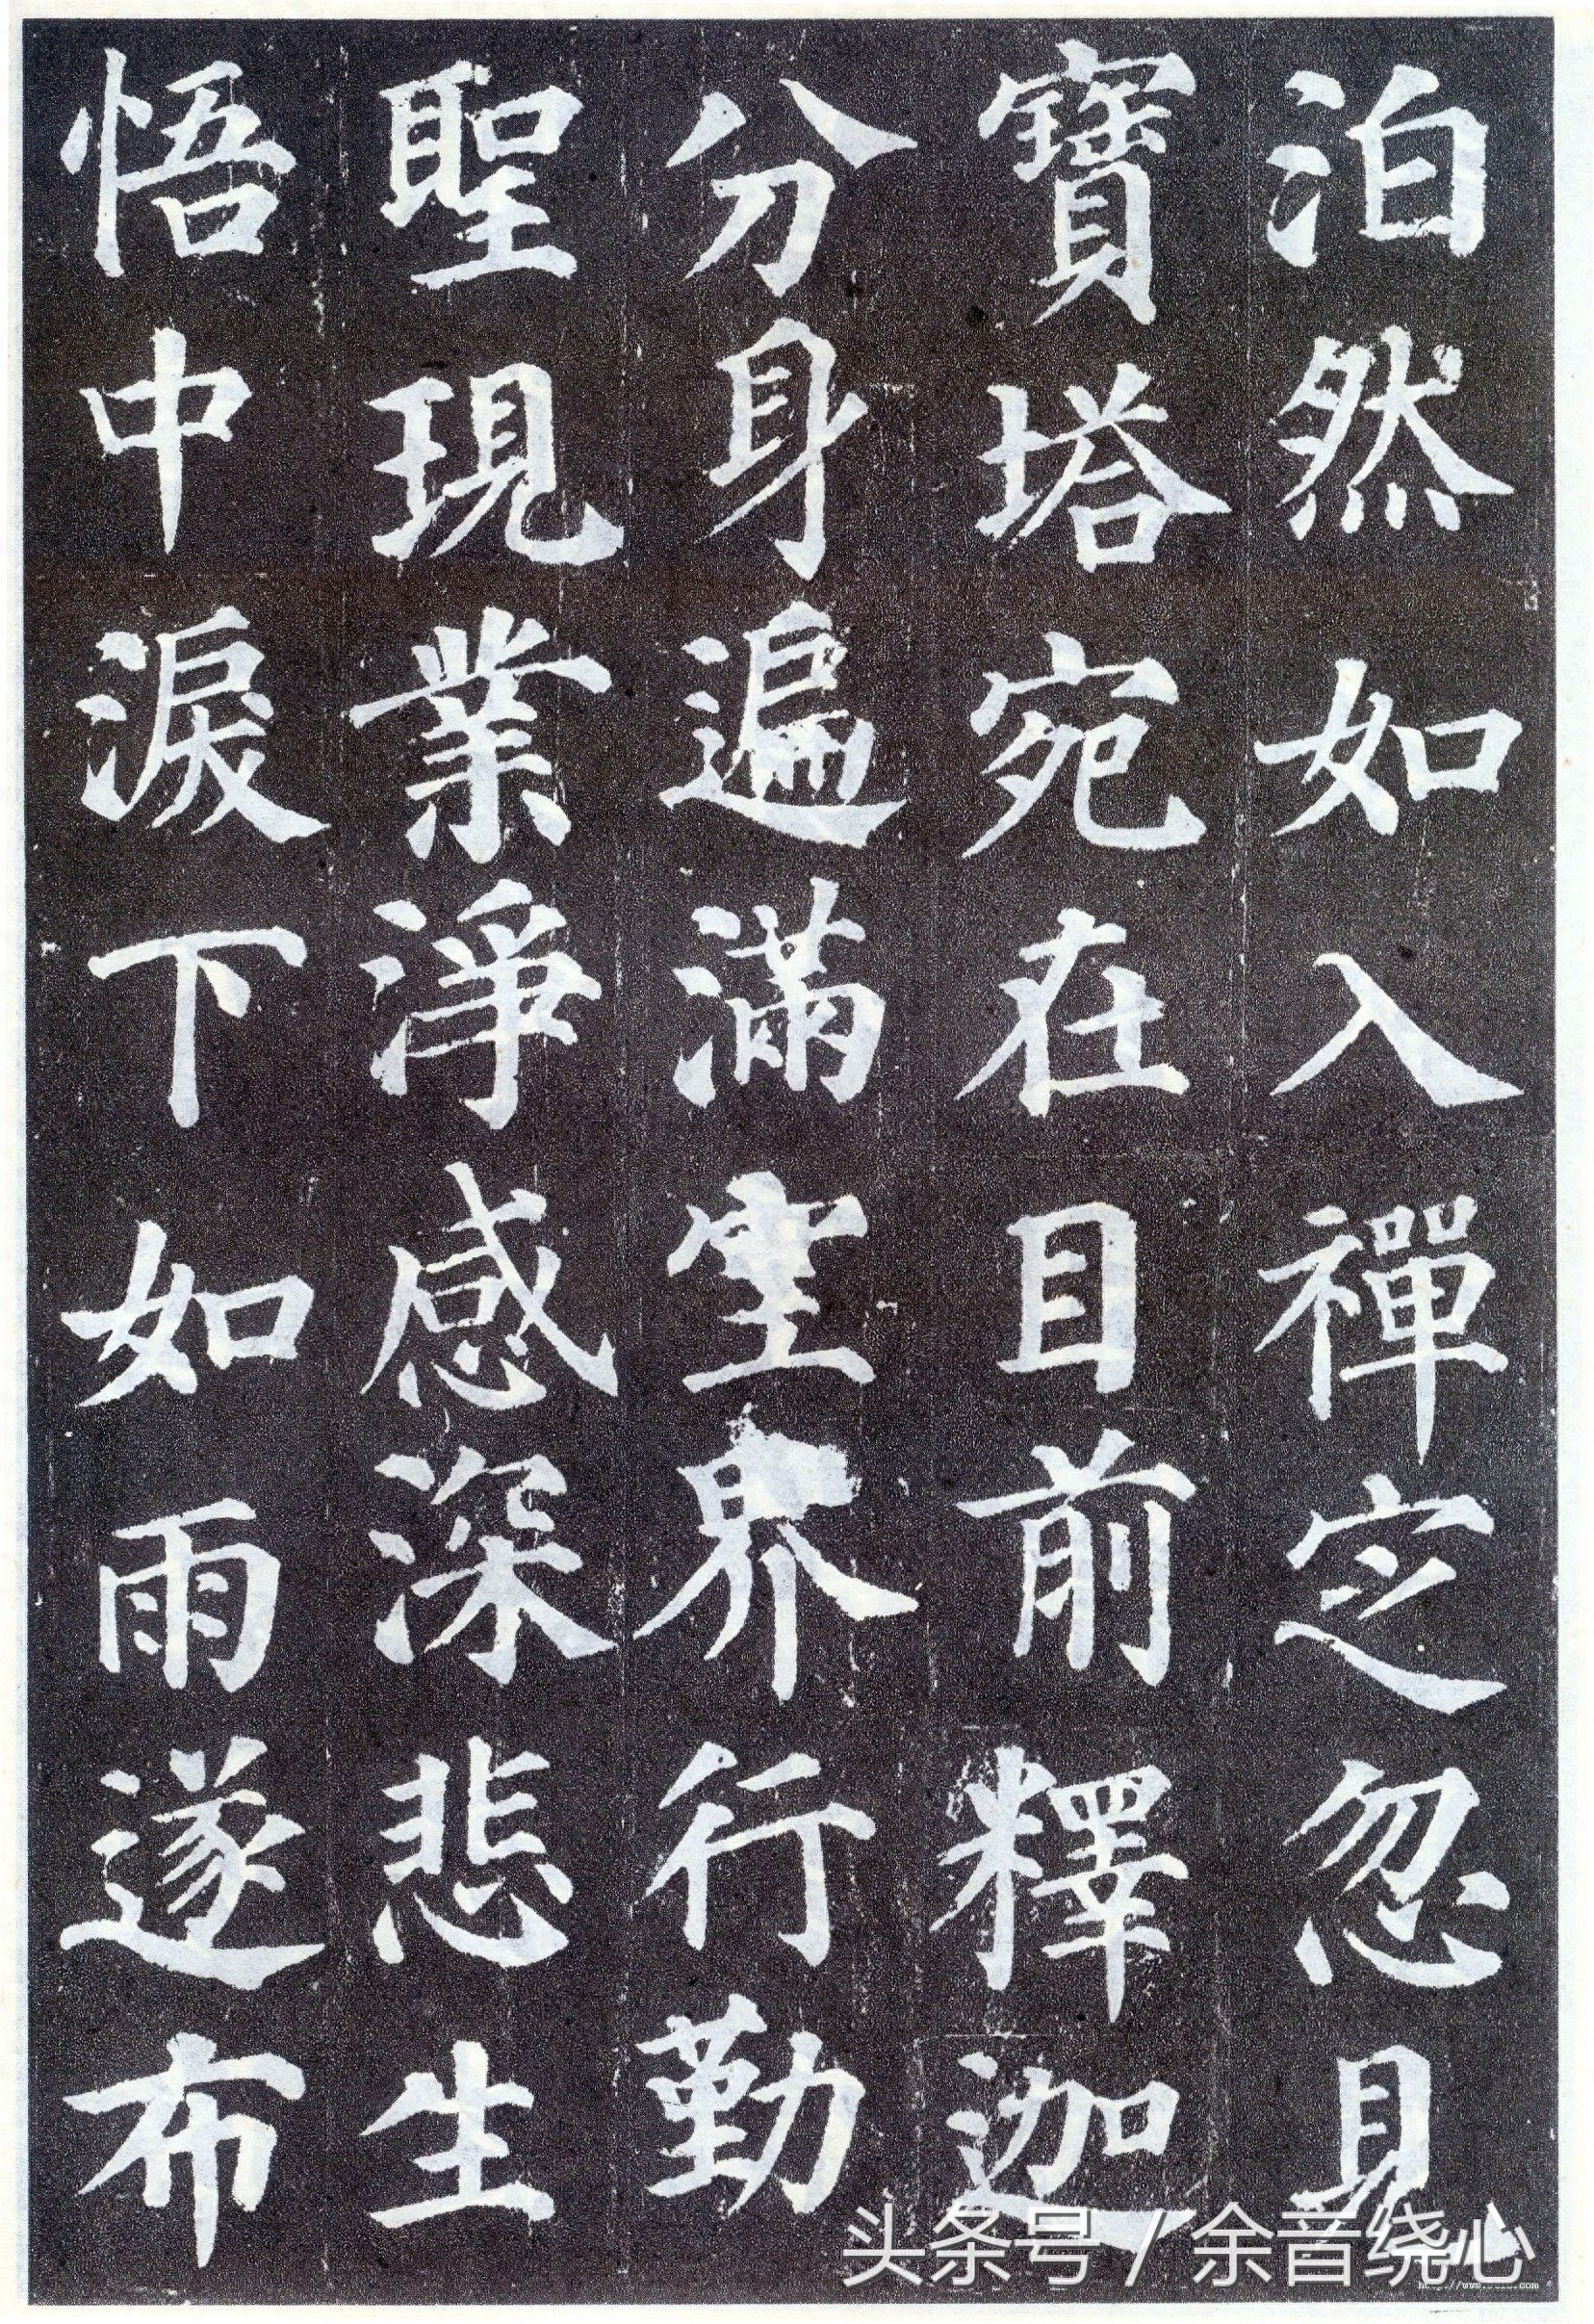 泊然如入禪定忽見
寶塔宛在目前釋迦
分身遍滿空界行勤
聖現業淨感深悲生
悟中淚下如雨遂布
头条号 / 余音绕心